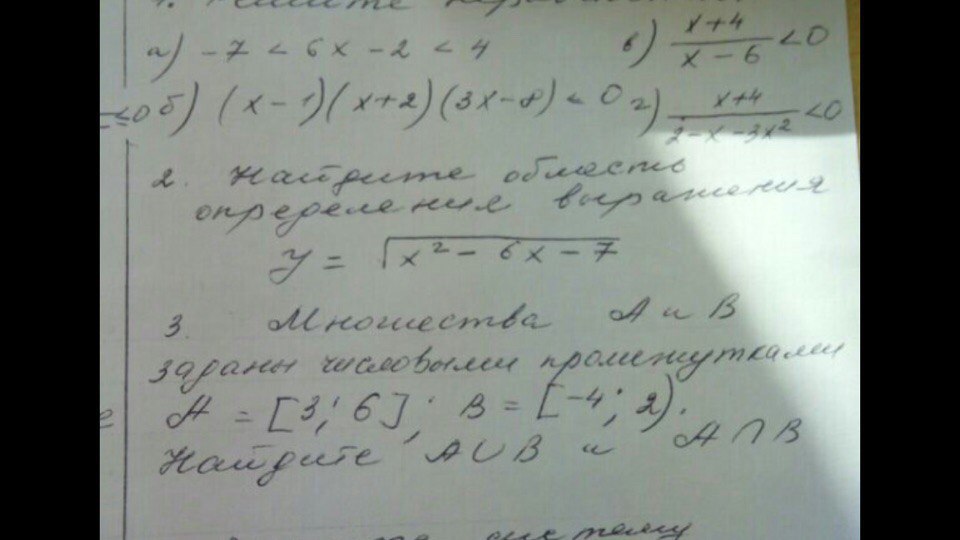 1. Решите неравенства
а) -7 < 6x - 2 < 4
в) x+4 / x-6 < 0
б) (x-1)(x+2)(3x-8) < 0
г) x+4 / 2-x-3x² < 0
≤0
2. Найдите область
определения выражения
y = √x² - 6x - 7
3. Множества A и B
заданы числовыми промежутками
A = [3; 6]; B = [-4; 2).
Найдите A∪B и A∩B
систему